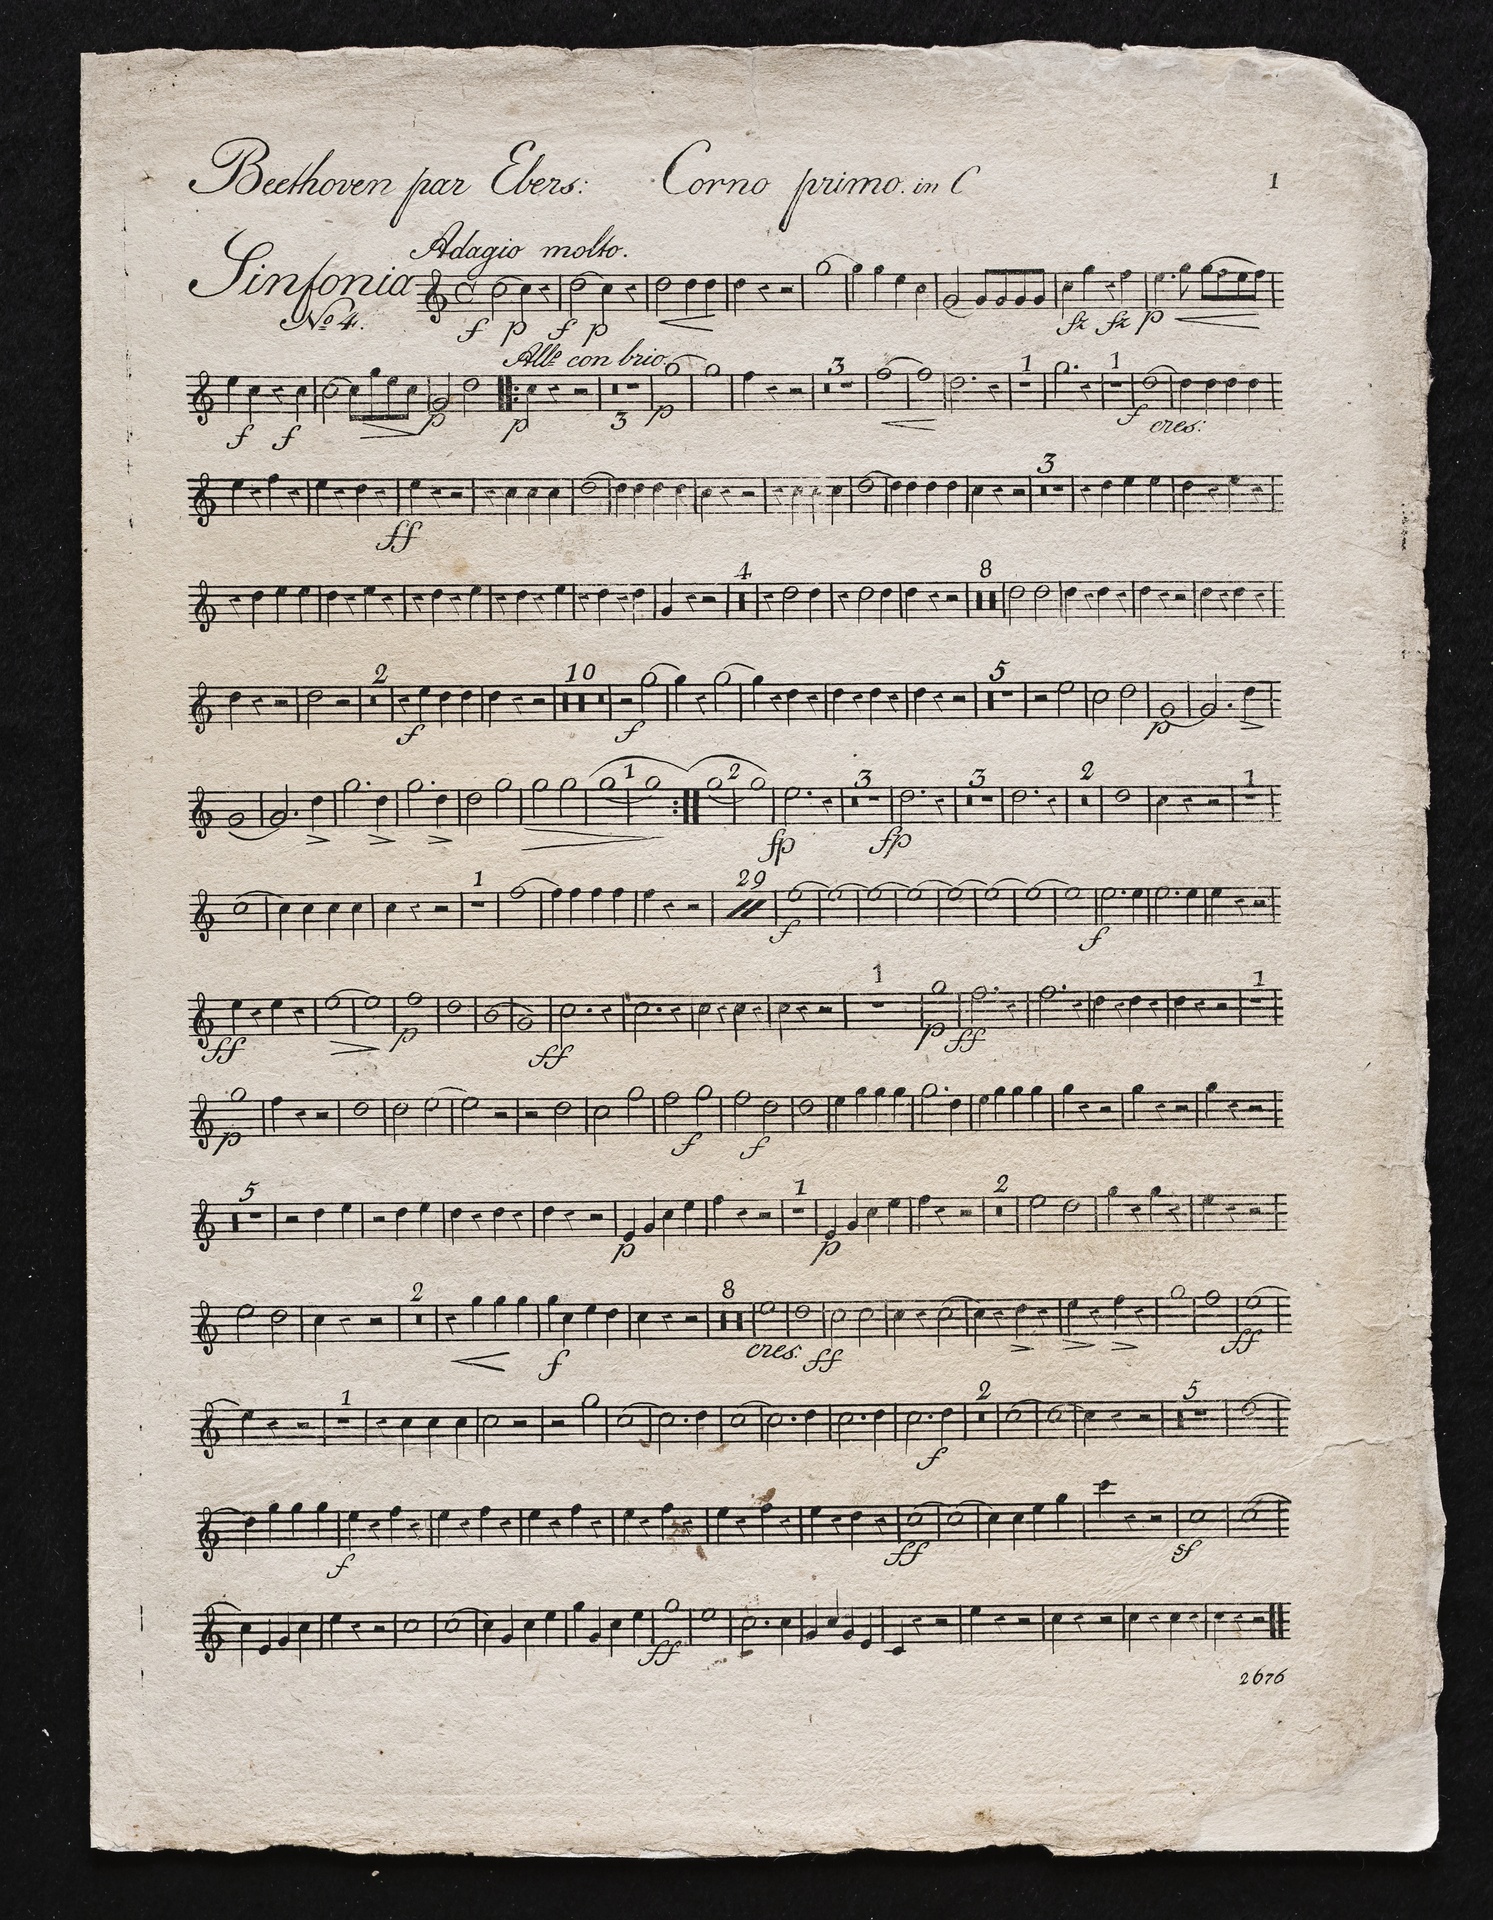 Beethoven par Ebers: Corno primo. in C 1
Adagio molto.
Sinfonia
No 4.
f p f p fz fz p
Allo con brio.
3 1 1
f f p p 3 p f cres:
3
ff
4 8
2 10 5
f f p
1 2 3 3 2 1
fp fp
1 29
f f
1 1
ff p ff p ff
p f f
5 1 2
p p
2 8
f cres. ff ff
1 2 5
f
f ff sf
ff
2676